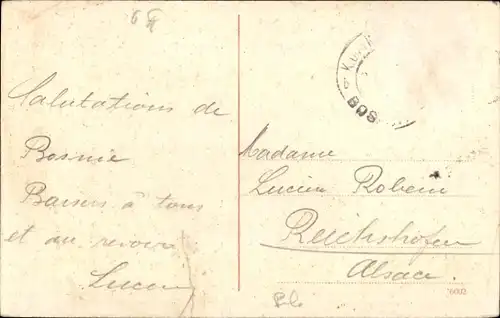 Salutations de
Bosnie
Baisers à tous
et au revoir
Lucien
Madame
Lucien Robein
Reichshofen
Alsace.
BOS